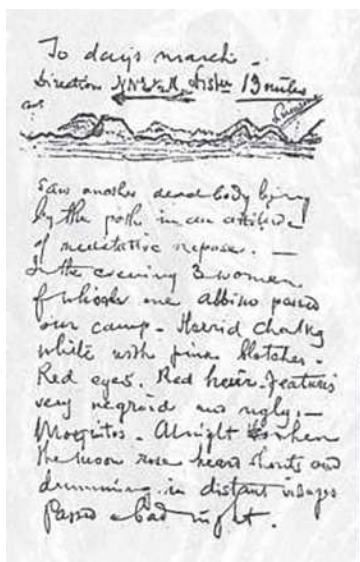 To day's march
Direction NNE½N. Dist. 13 miles
Sunrise
Saw another dead body lying
by the path in an attitude
of meditative repose. —
In the evening 3 women
of whom one albino passed
our camp - Horrid chalky
white with pink blotches.
Red eyes. Red hair. Features
very negroid and ugly. —
Mosquitos. At night when
the moon rose heard shouts and
drumming in distant villages
Passed a bad night.